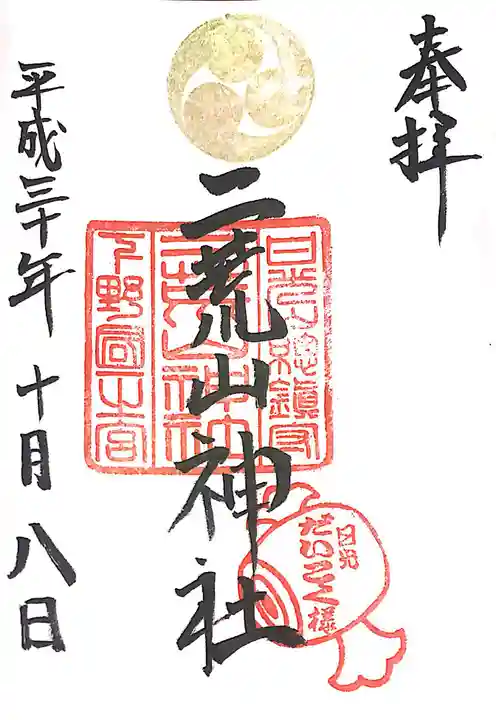 奉拝
二荒山神社
日光山總鎮守
二荒山神社
下野國一之宮
日光
だいこく様
平成三十年十月八日